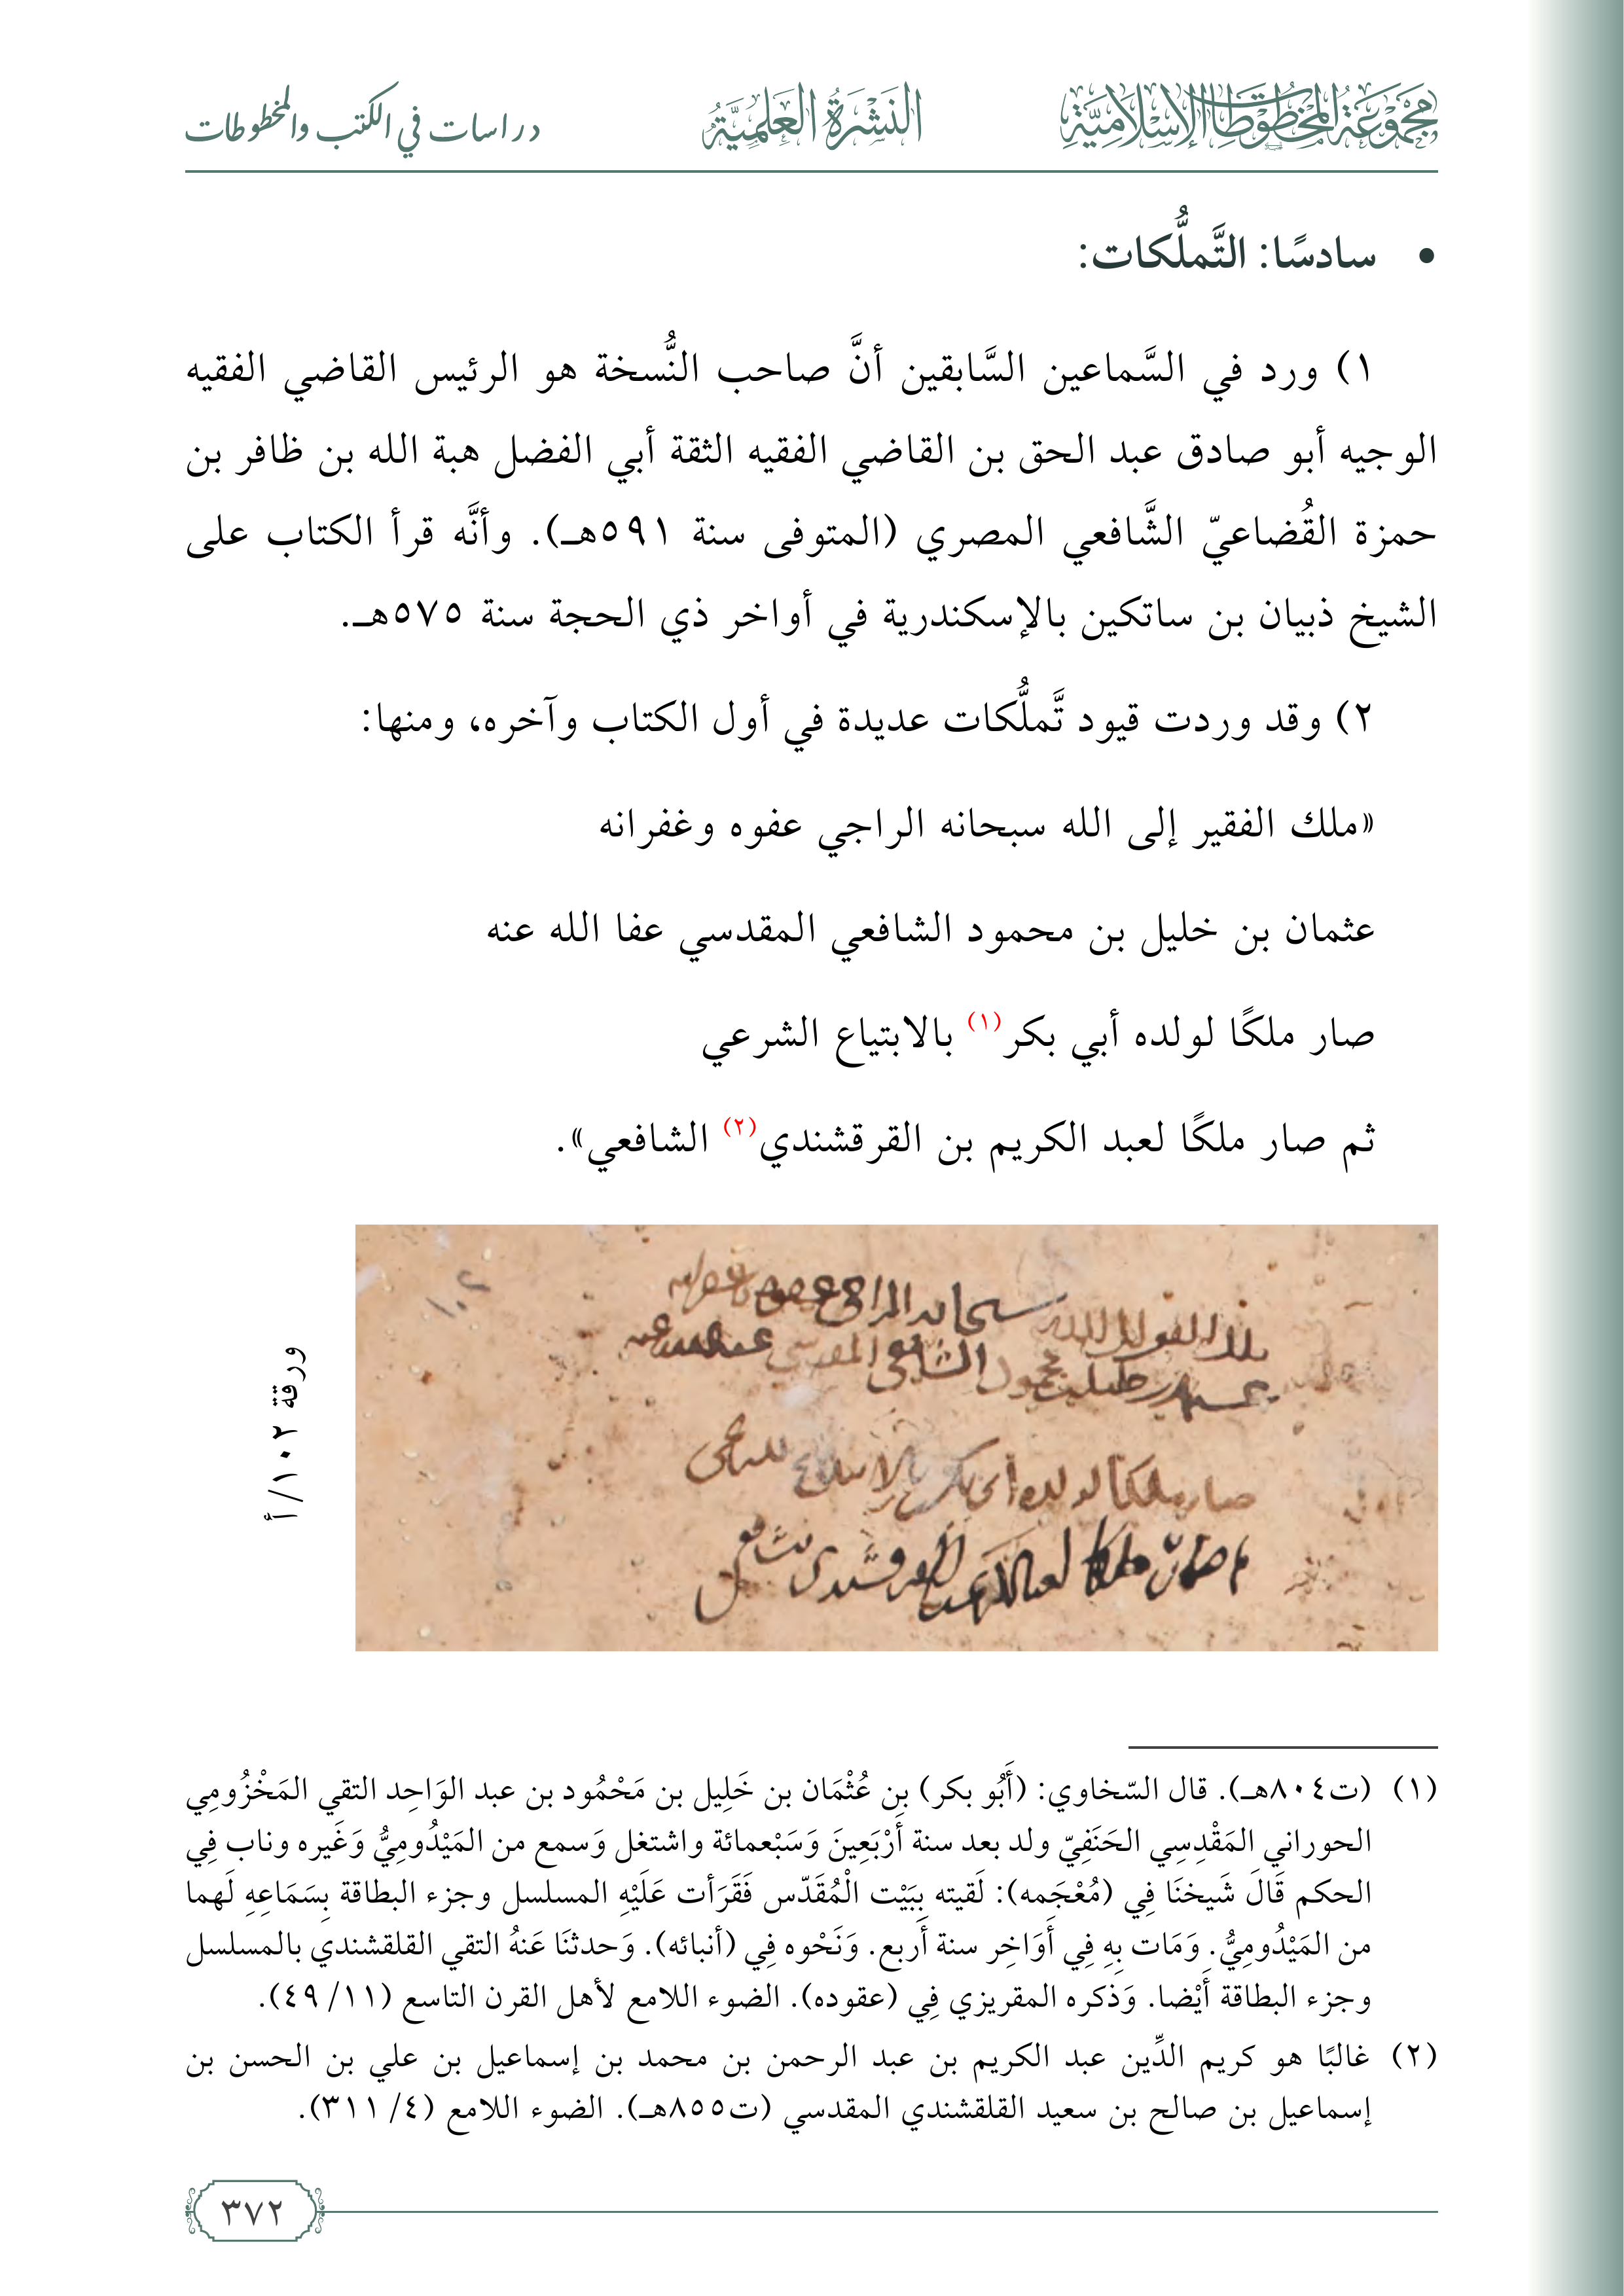 مَجْمُوعَةُ المَخْطُوطَاتِ الإِسْلَامِيَّةِ
النَّشْرَةُ العِلْمِيَّةُ
دراسات في الكتب والمخطوطات
• سادسًا: التَّملُّكات:
١) ورد في السَّماعين السَّابقين أنَّ صاحب النُّسخة هو الرئيس القاضي الفقيه
الوجيه أبو صادق عبد الحق بن القاضي الفقيه الثقة أبي الفضل هبة الله بن ظافر بن
حمزة القُضاعيّ الشَّافعي المصري (المتوفى سنة ٥٩١هـ). وأنَّه قرأ الكتاب على
الشيخ ذبيان بن ساتكين بالإسكندرية في أواخر ذي الحجة سنة ٥٧٥هـ.
٢) وقد وردت قيود تَّملُّكات عديدة في أول الكتاب وآخره، ومنها:
«ملك الفقير إلى الله سبحانه الراجي عفوه وغفرانه
عثمان بن خليل بن محمود الشافعي المقدسي عفا الله عنه
صار ملكًا لولده أبي بكر(١) بالابتياع الشرعي
ثم صار ملكًا لعبد الكريم بن القرقشندي(٢) الشافعي».
١٠٢
سبحانه الراجي عفوه وغفرانه
الشافعي المقدسي
صار ملكا لولده أبي بكر
ثم صار ملكا لعبد الكريم القرقشندي
ورقة ١٠٢/أ
(١) (ت٨٠٤هـ). قال السّخاوي: (أَبُو بكر) بن عُثْمَان بن خَلِيل بن مَحْمُود بن عبد الوَاحِد التقي المَخْزُومِي
الحوراني المَقْدِسِي الحَنَفِيّ ولد بعد سنة أَرْبَعِينَ وَسَبْعمائة واشتغل وَسمع من المَيْدُومِيُّ وَغَيره وناب فِي
الحكم قَالَ شَيخنَا فِي (مُعْجَمه): لَقيته بِبَيْت الْمُقَدّس فَقَرَأت عَلَيْهِ المسلسل وجزء البطاقة بِسَمَاعِهِ لَهما
من المَيْدُومِيُّ. وَمَات بِهِ فِي أَوَاخِر سنة أَربع. وَنَحْوه فِي (أنبائه). وَحدثنَا عَنهُ التقي القلقشندي بالمسلسل
وجزء البطاقة أَيْضا. وَذكره المقريزي فِي (عقوده). الضوء اللامع لأهل القرن التاسع (٤٩/١١).
(٢) غالبًا هو كريم الدِّين عبد الكريم بن عبد الرحمن بن محمد بن إسماعيل بن علي بن الحسن بن
إسماعيل بن صالح بن سعيد القلقشندي المقدسي (ت٨٥٥هـ). الضوء اللامع (٣١١/٤).
٣٧٢